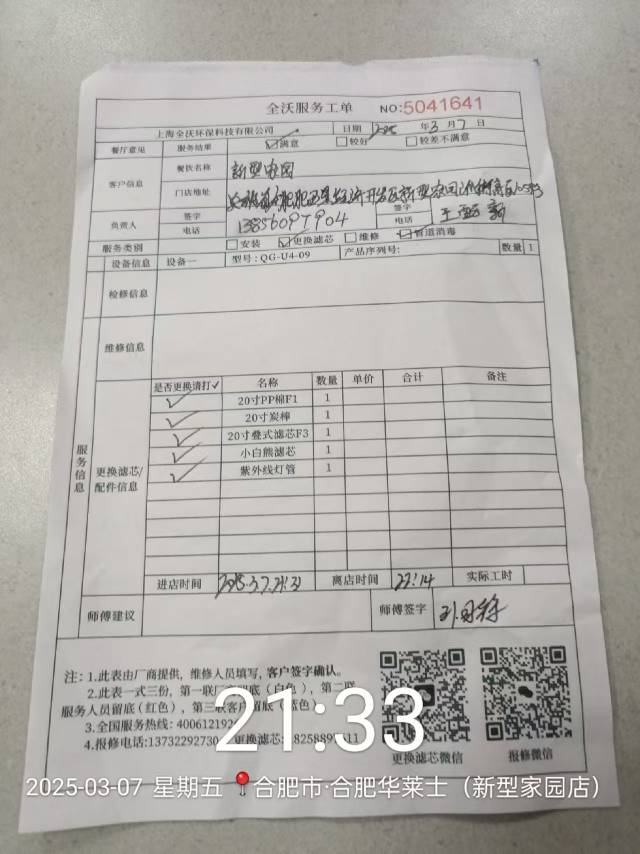 全沃服务工单 NO:5041641
上海全沃环保科技有限公司 日期 2025年3月7日
餐厅意见 服务结果 ☑满意 □较好 □较差不满意
客户信息 餐饮名称 新型家园
门店地址
负责人 签字 签字
电话 13856097904 电话
服务类别 □安装 ☑更换滤芯 □维修 ☑管道消毒
设备信息 设备一 型号:QG-U4-09 产品序列号: 数量 1
检修信息
维修信息
服务信息
更换滤芯/配件信息
是否更换请打✓ 名称 数量 单价 合计 备注
✓ 20寸PP棉F1 1
✓ 20寸炭棒 1
✓ 20寸叠式滤芯F3 1
✓ 小白熊滤芯 1
✓ 紫外线灯管 1
进店时间 2025.3.7.21:33 离店时间 22:14 实际工时
师傅建议 师傅签字
注:1.此表由厂商提供,维修人员填写,客户签字确认。
2.此表一式三份,第一联厂 底(白色),第二联
服务人员留底(红色),第三联客户留底(蓝色)
3.全国服务热线:40061219
4.报修电话:13732292730 更换滤芯:
更换滤芯微信 报修微信
21:33
2025-03-07 星期五 合肥市·合肥华莱士(新型家园店)